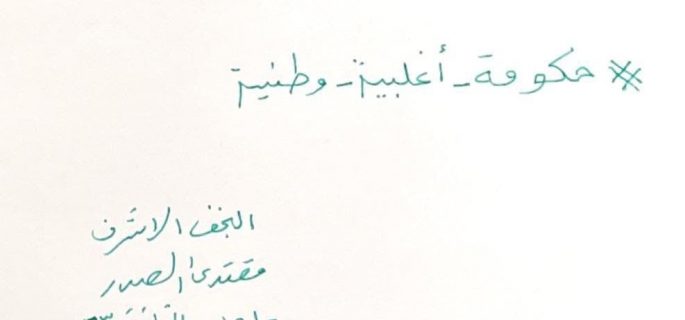 # حكومة_أغلبية_وطنية
النجف الاشرف
مقتدى الصدر